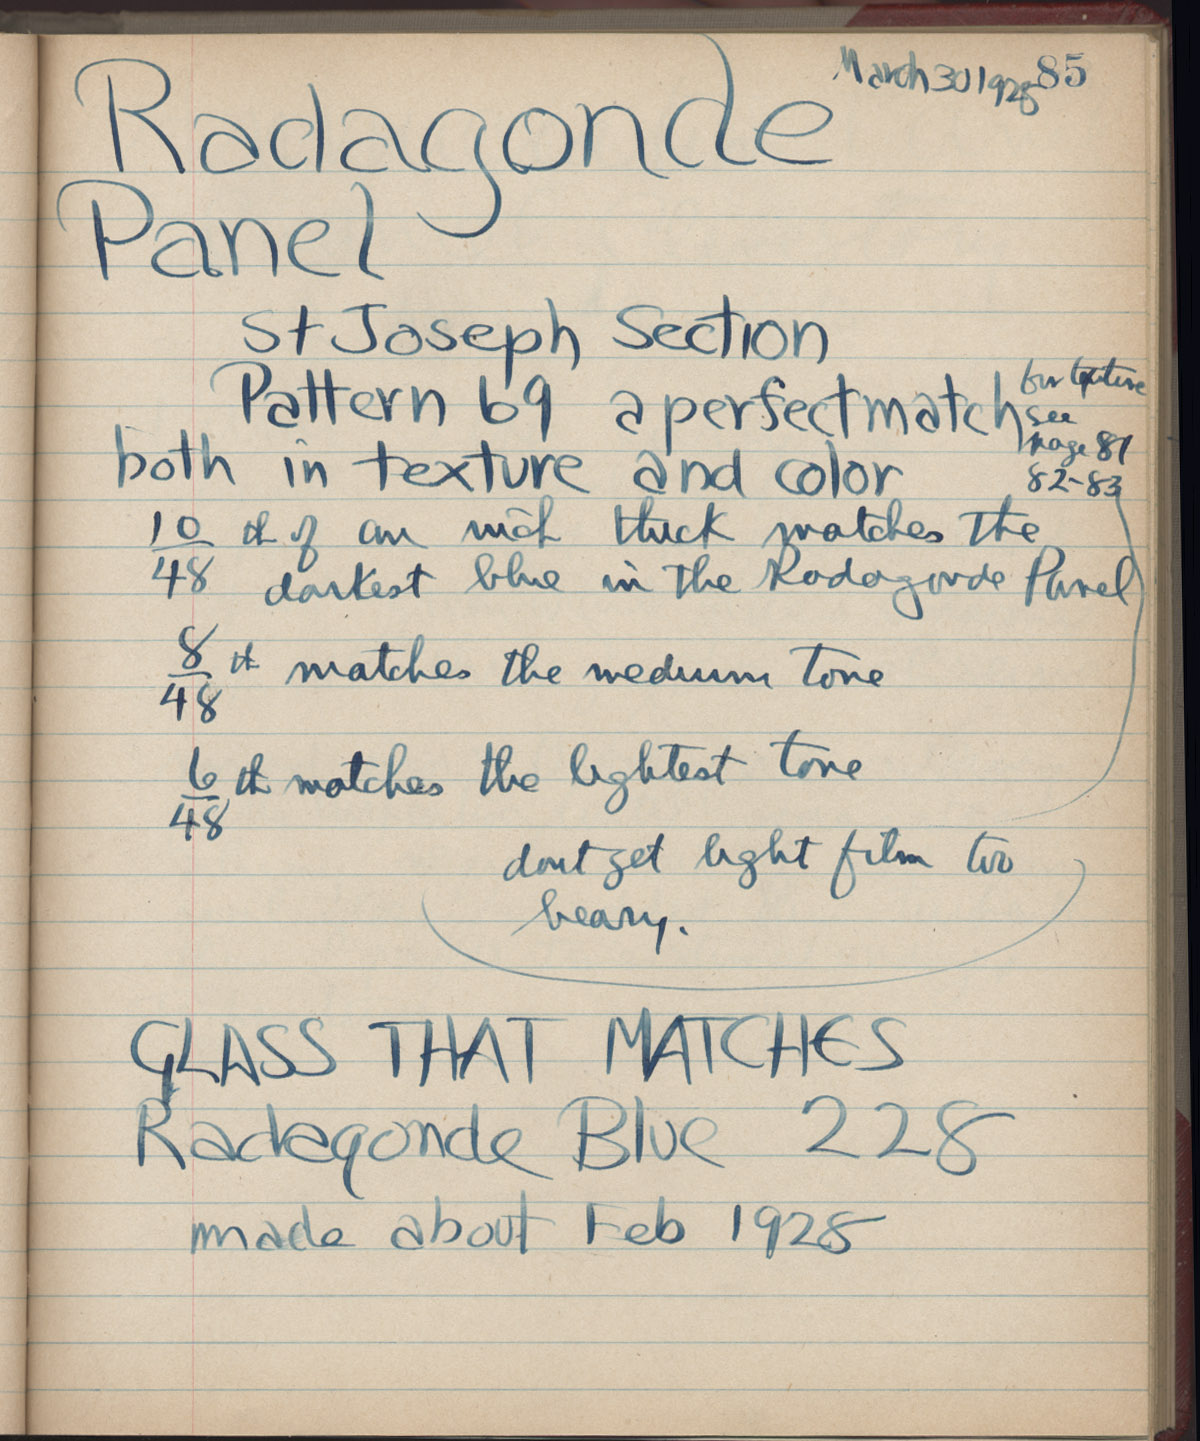 March 30 1928 85
Radagonde
Panel
St Joseph Section
Pattern 69 a perfect match
for texture
see
page 81
82-83
both in texture and color
10/48 th of an inch thick matches the
darkest blue in the Radagonde Panel
8/48 th matches the medium tone
6/48 th matches the lightest tone
dont get light film too
heavy.
GLASS THAT MATCHES
Radagonde Blue 228
made about Feb 1928